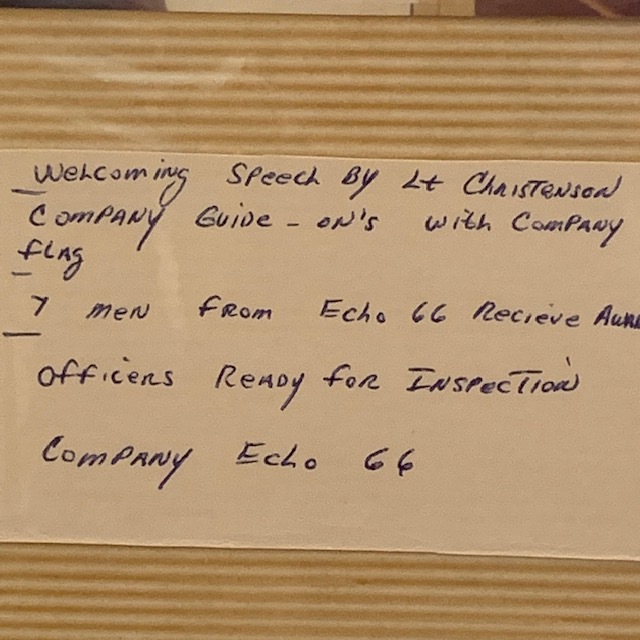 Welcoming Speech By Lt Christenson
Company Guide-on's with Company
flag
7 men from Echo 66 Recieve
Officers Ready for Inspection
Company Echo 66